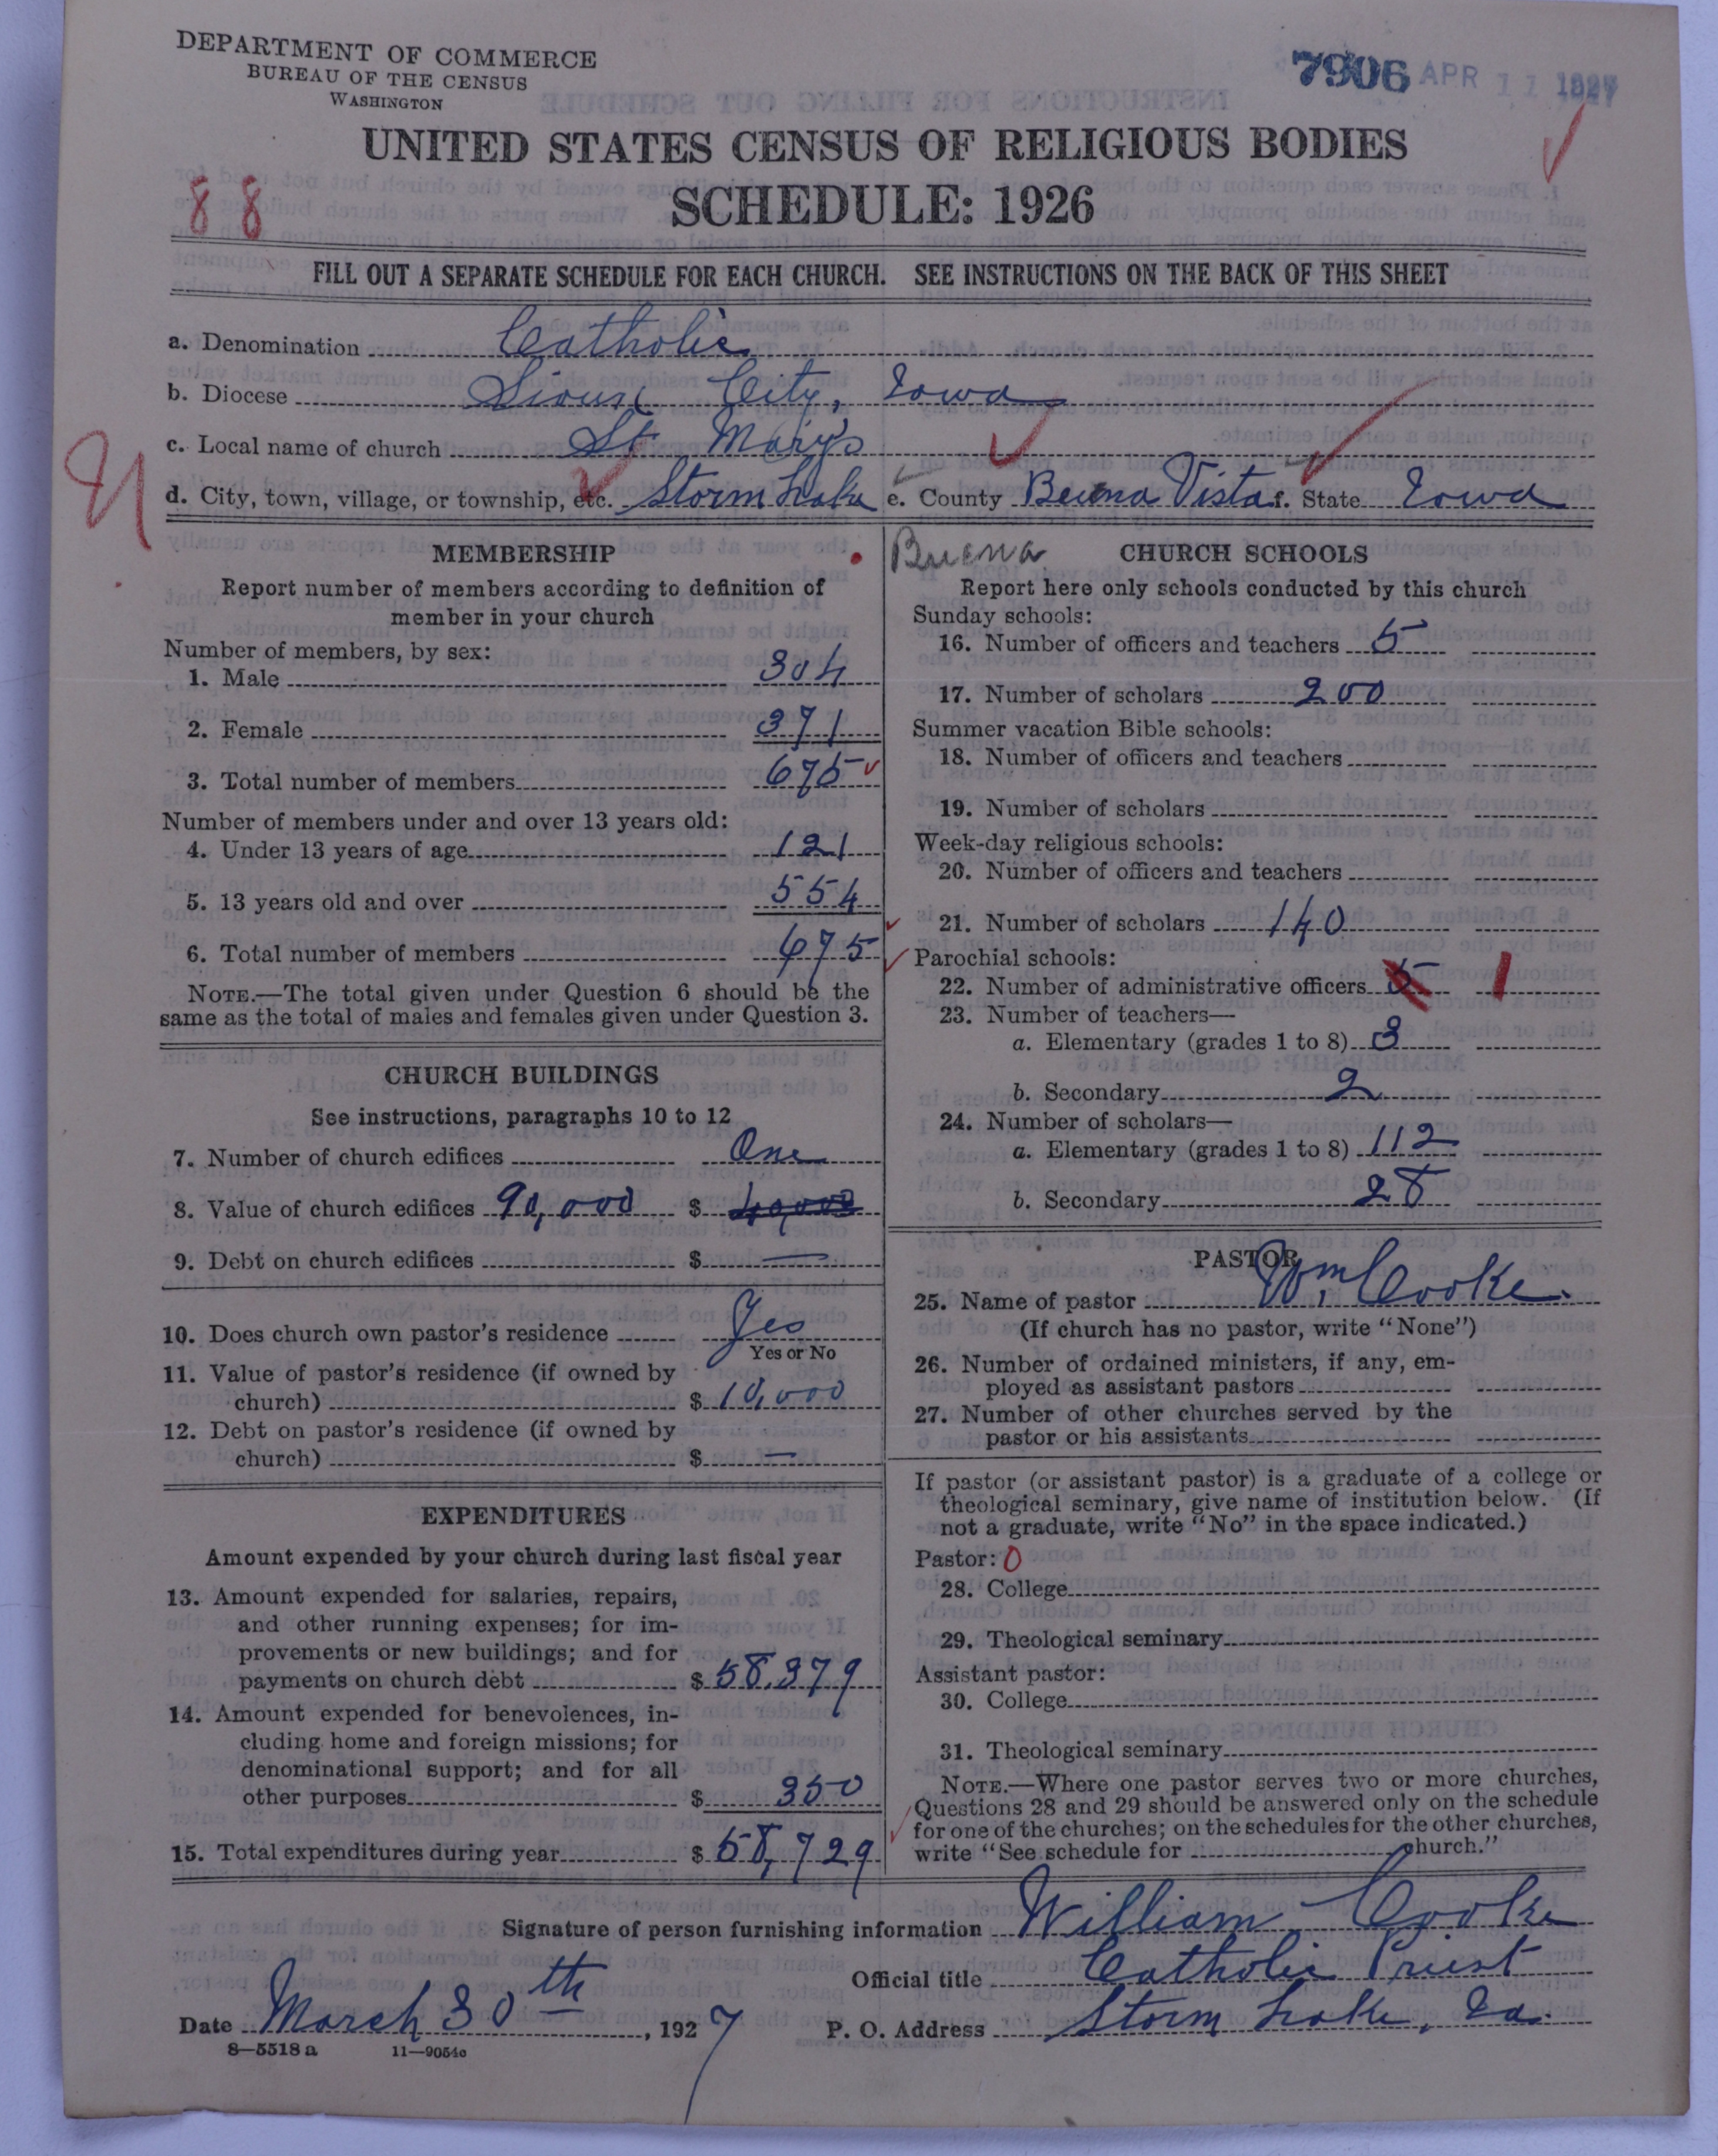 DEPARTMENT OF COMMERCE
BUREAU OF THE CENSUS
WASHINGTON
7906 APR 11 1927
UNITED STATES CENSUS OF RELIGIOUS BODIES
SCHEDULE: 1926
88
FILL OUT A SEPARATE SCHEDULE FOR EACH CHURCH. SEE INSTRUCTIONS ON THE BACK OF THIS SHEET
a. Denomination Catholic
b. Diocese Sioux City, Iowa
c. Local name of church St Mary's
d. City, town, village, or township, etc. Storm Lake e. County Buena Vista f. State Iowa
MEMBERSHIP
Report number of members according to definition of
member in your church
Number of members, by sex:
1. Male 304
2. Female 371
3. Total number of members 675
Number of members under and over 13 years old:
4. Under 13 years of age 121
5. 13 years old and over 554
6. Total number of members 675
NOTE.—The total given under Question 6 should be the
same as the total of males and females given under Question 3.
CHURCH BUILDINGS
See instructions, paragraphs 10 to 12
7. Number of church edifices One
8. Value of church edifices 90,000 $ 40,000
9. Debt on church edifices $ —
10. Does church own pastor's residence Yes
Yes or No
11. Value of pastor's residence (if owned by
church) $ 10,000
12. Debt on pastor's residence (if owned by
church) $ —
EXPENDITURES
Amount expended by your church during last fiscal year
13. Amount expended for salaries, repairs,
and other running expenses; for im-
provements or new buildings; and for
payments on church debt $ 58,379
14. Amount expended for benevolences, in-
cluding home and foreign missions; for
denominational support; and for all
other purposes $ 350
15. Total expenditures during year $ 58,729
Buena
CHURCH SCHOOLS
Report here only schools conducted by this church
Sunday schools:
16. Number of officers and teachers 5
17. Number of scholars 200
Summer vacation Bible schools:
18. Number of officers and teachers
19. Number of scholars
Week-day religious schools:
20. Number of officers and teachers
21. Number of scholars 140
Parochial schools:
22. Number of administrative officers 5 1
23. Number of teachers—
a. Elementary (grades 1 to 8) 3
b. Secondary 2
24. Number of scholars—
a. Elementary (grades 1 to 8) 112
b. Secondary 28
PASTOR
25. Name of pastor Wm Cooke.
(If church has no pastor, write "None")
26. Number of ordained ministers, if any, em-
ployed as assistant pastors
27. Number of other churches served by the
pastor or his assistants
If pastor (or assistant pastor) is a graduate of a college or
theological seminary, give name of institution below. (If
not a graduate, write "No" in the space indicated.)
Pastor: 0
28. College
29. Theological seminary
Assistant pastor:
30. College
31. Theological seminary
NOTE.—Where one pastor serves two or more churches,
Questions 28 and 29 should be answered only on the schedule
for one of the churches; on the schedules for the other churches,
write "See schedule for church."
Signature of person furnishing information William Cooke
Official title Catholic Priest
Date March 30th, 1927 P. O. Address Storm Lake, Ia.
8—5518a 11—9054c